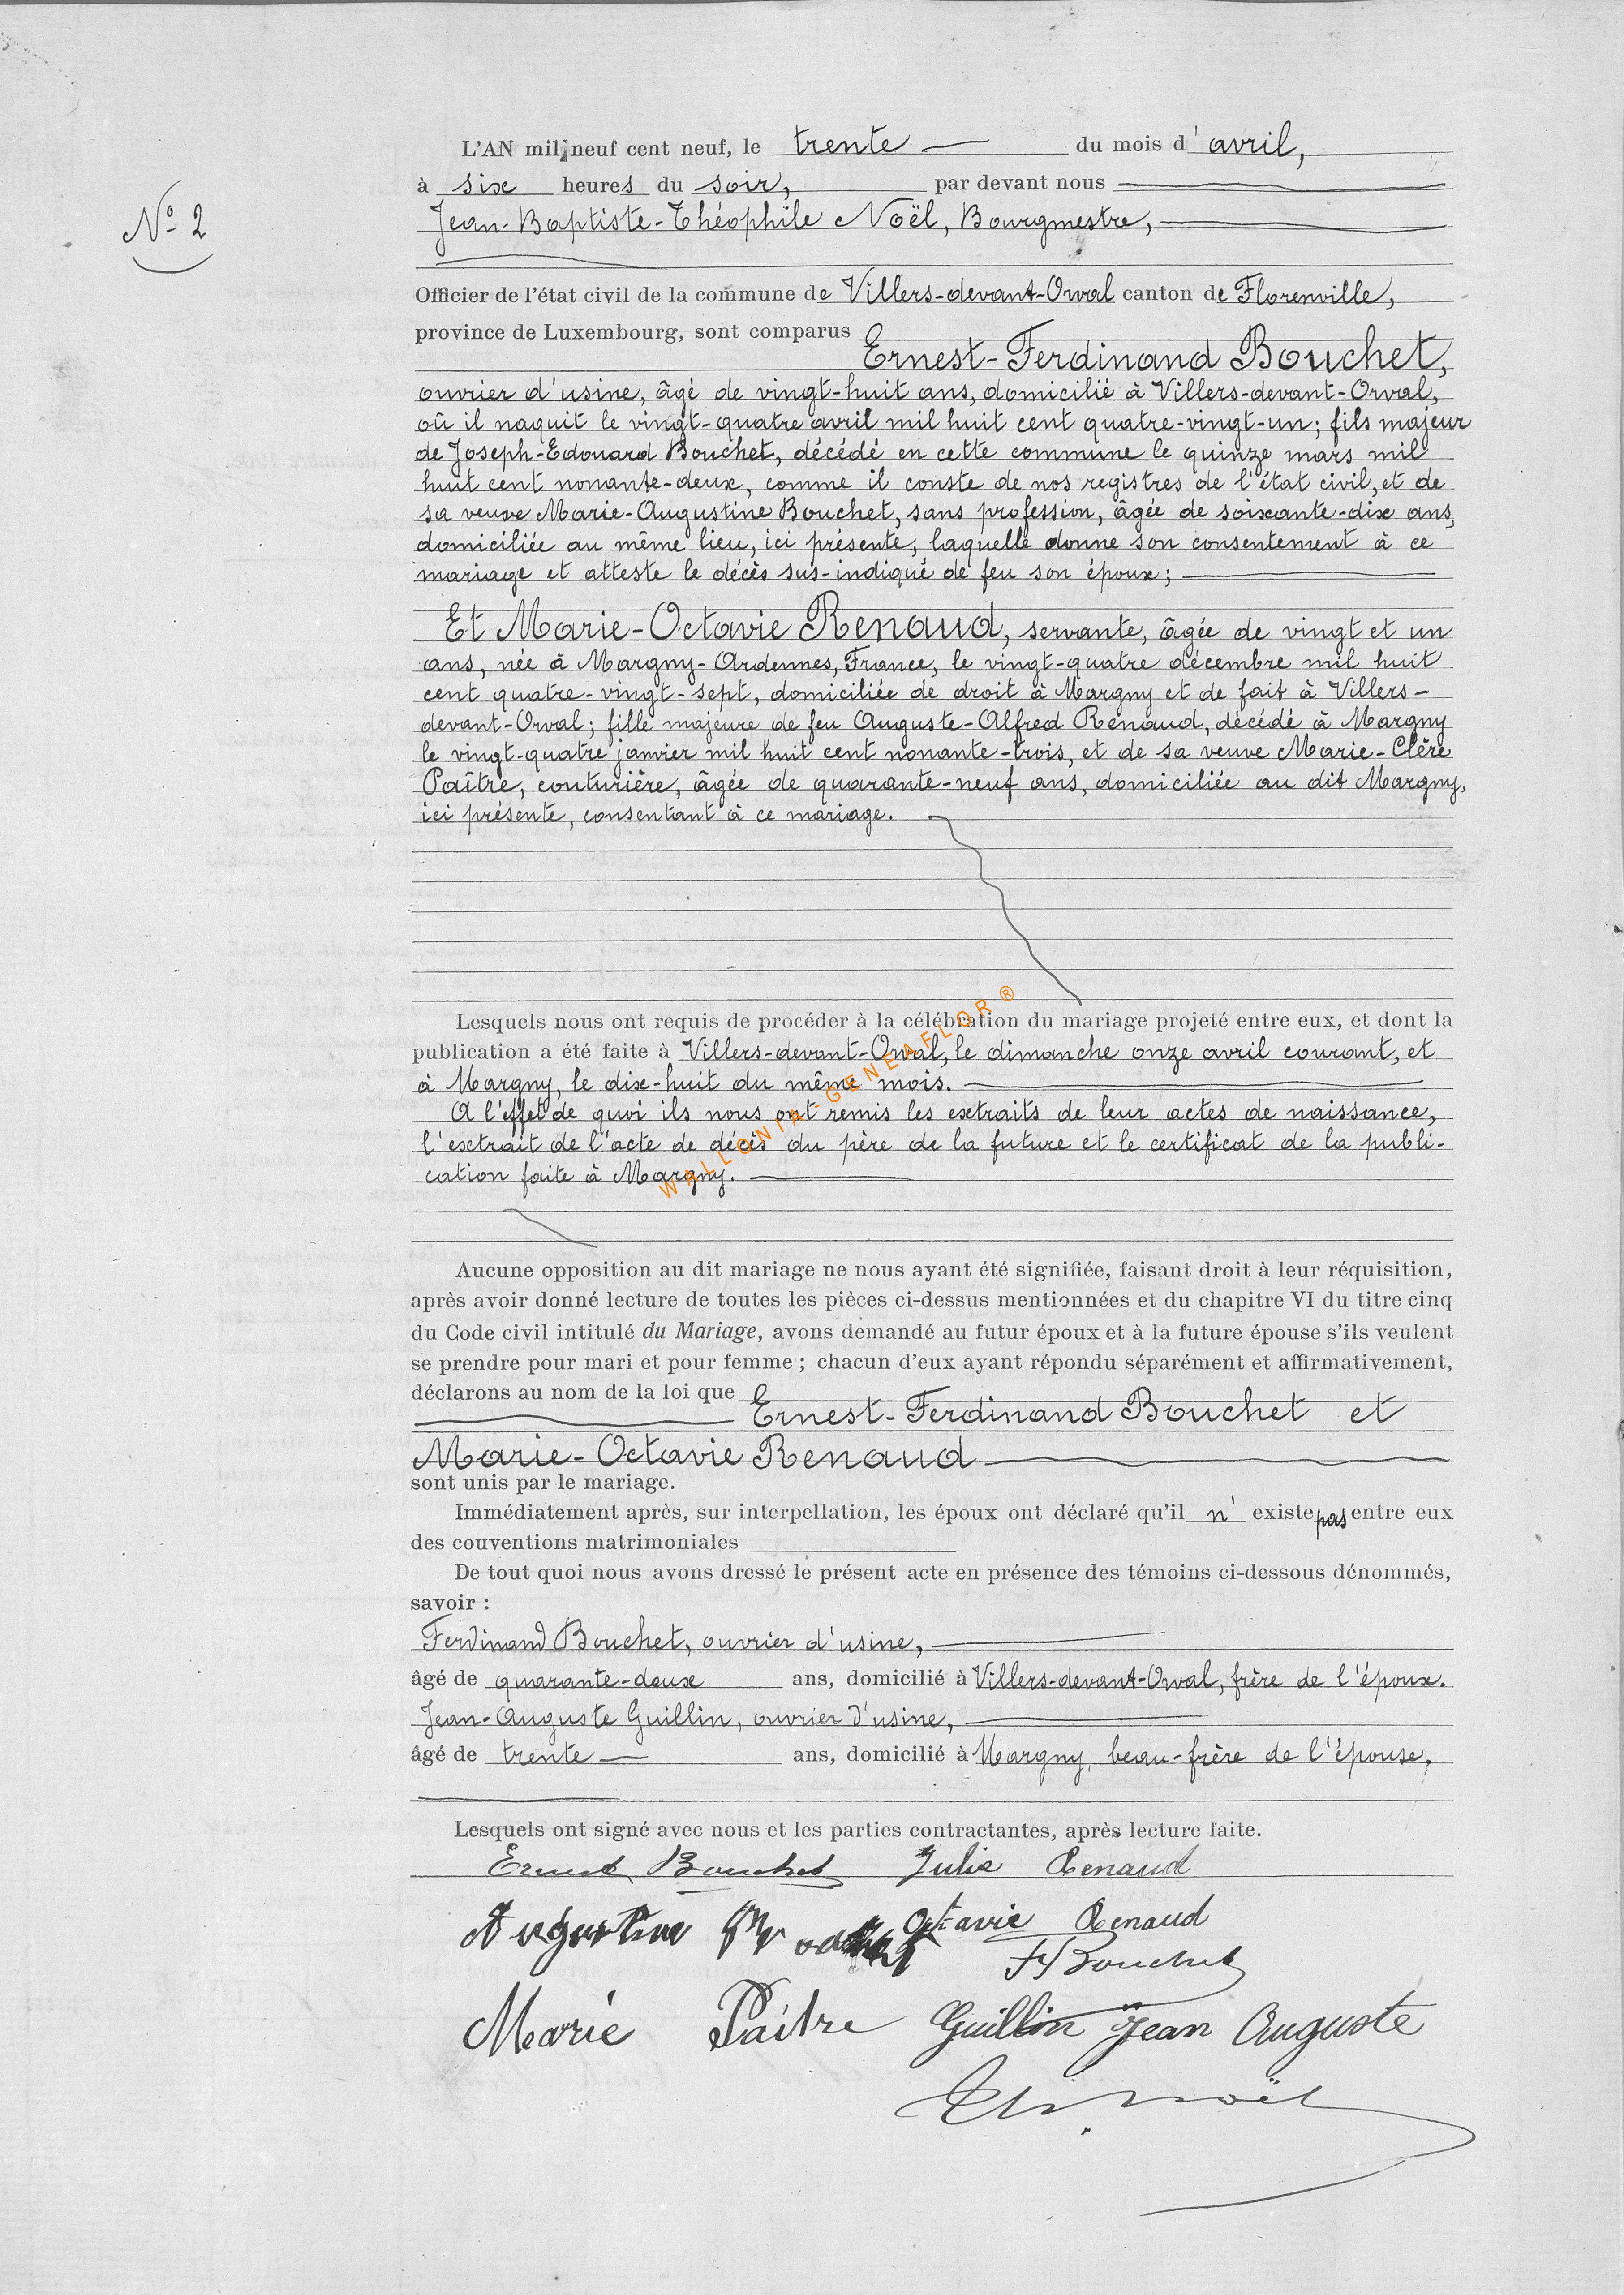 L'AN mil neuf cent neuf, le trente du mois d'avril,
à six heures du soir, par devant nous
N° 2
Jean-Baptiste-Théophile Noël, Bourgmestre,
Officier de l'état civil de la commune de Villers-devant-Orval canton de Florenville,
province de Luxembourg, sont comparus
Ernest-Ferdinand Bouchet,
ouvrier d'usine, âgé de vingt-huit ans, domicilié à Villers-devant-Orval,
où il naquit le vingt-quatre avril mil huit cent quatre-vingt-un; fils majeur
de Joseph-Edouard Bouchet, décédé en cette commune le quinze mars mil
huit cent nonante-deux, comme il conste de nos registres de l'état civil, et de
sa veuve Marie-Augustine Bouchet, sans profession, âgée de soixante-dix ans,
domiciliée au même lieu, ici présente, laquelle donne son consentement à ce
mariage et atteste le décès sus-indiqué de feu son époux;
Et Marie-Octavie Renaud, servante, âgée de vingt et un
ans, née à Margny-Ardennes, France, le vingt-quatre décembre mil huit
cent quatre-vingt-sept, domiciliée de droit à Margny et de fait à Villers-
devant-Orval; fille majeure de feu Auguste-Alfred Renaud, décédé à Margny
le vingt-quatre janvier mil huit cent nonante-trois, et de sa veuve Marie-Clère
Paître, couturière, âgée de quarante-neuf ans, domiciliée au dit Margny,
ici présente, consentant à ce mariage.
Lesquels nous ont requis de procéder à la célébration du mariage projeté entre eux, et dont la
publication a été faite à Villers-devant-Orval, le dimanche onze avril courant, et
à Margny, le dix-huit du même mois.
A l'effet de quoi ils nous ont remis les extraits de leur actes de naissance,
l'extrait de l'acte de décès du père de la future et le certificat de la publi-
cation faite à Margny.
WALLONIA-GENEAFLOR®
Aucune opposition au dit mariage ne nous ayant été signifiée, faisant droit à leur réquisition,
après avoir donné lecture de toutes les pièces ci-dessus mentionnées et du chapitre VI du titre cinq
du Code civil intitulé du Mariage, avons demandé au futur époux et à la future épouse s'ils veulent
se prendre pour mari et pour femme ; chacun d'eux ayant répondu séparément et affirmativement,
déclarons au nom de la loi que
Ernest-Ferdinand Bouchet et
Marie-Octavie Renaud
sont unis par le mariage.
Immédiatement après, sur interpellation, les époux ont déclaré qu'il n'existe pas entre eux
des conventions matrimoniales
De tout quoi nous avons dressé le présent acte en présence des témoins ci-dessous dénommés,
savoir :
Ferdinand Bouchet, ouvrier d'usine,
âgé de quarante-deux ans, domicilié à Villers-devant-Orval, frère de l'époux.
Jean-Auguste Guillin, ouvrier d'usine,
âgé de trente ans, domicilié à Margny, beau-frère de l'épouse.
Lesquels ont signé avec nous et les parties contractantes, après lecture faite.
Ernest Bouchet Julie Renaud
Augustine Octavie Renaud
F Bouchet
Marie Paitre Guillin Jean Auguste
Th. Noël